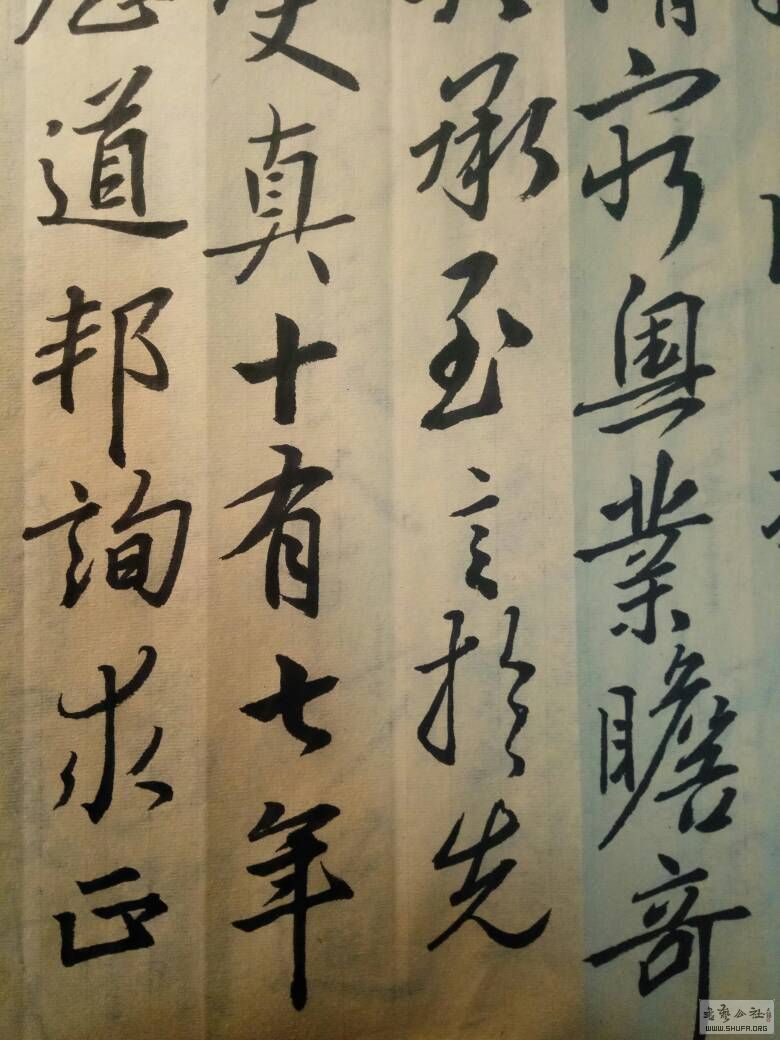 窮奧業瞻奇
承至言於先
真十有七年
道邦詢求正
書藝公社
WWW.SHUFA.ORG